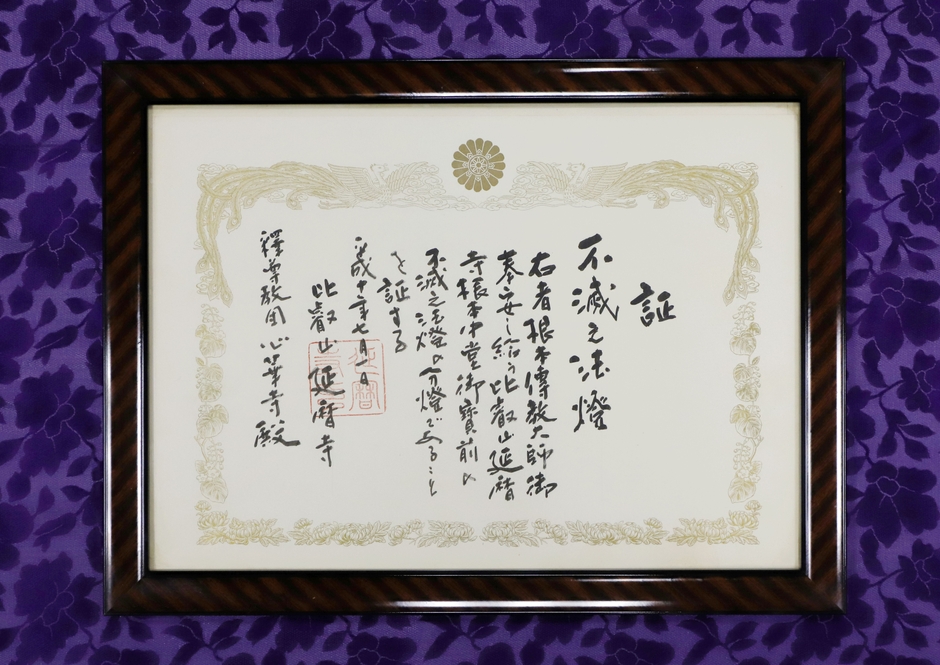 証
不滅之法燈
右者根本傳教大師御
奉安し給う比叡山延暦
寺根本中堂御寳前の
不滅之法燈の分燈であること
を証する
平成十年七月一日
比叡山延暦寺
釋尊教団心華寺殿